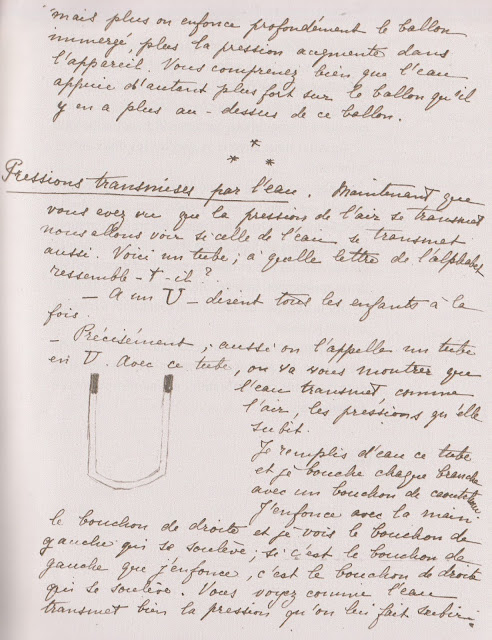 mais plus on enfonce profondément le ballon
immergé, plus la pression augmente dans
l'appareil. Vous comprenez bien que l'eau
appuie d'autant plus fort sur le ballon qu'il
y en a plus au-dessus de ce ballon.
*
* *
Pressions transmises par l'eau. Maintenant que
vous avez vu que la pression de l'air se transmet
nous allons voir si celle de l'eau se transmet
aussi. Voici un tube ; à quelle lettre de l'alphabet
ressemble-t-il ?
— A un U — disent tous les enfants à la
fois.
— Précisément ; aussi on l'appelle un tube
en U. Avec ce tube, on va vous montrer que
l'eau transmet comme
l'air, les pressions qu'elle
subit.
Je remplis d'eau ce tube
et je bouche chaque branche
avec un bouchon de caoutchouc.
J'enfonce avec la main
le bouchon de droite et je vois le bouchon de
gauche qui se soulève ; si c'est le bouchon de
gauche que j'enfonce, c'est le bouchon de droite
qui se soulève. Vous voyez comme l'eau
transmet bien la pression qu'on lui fait subir.